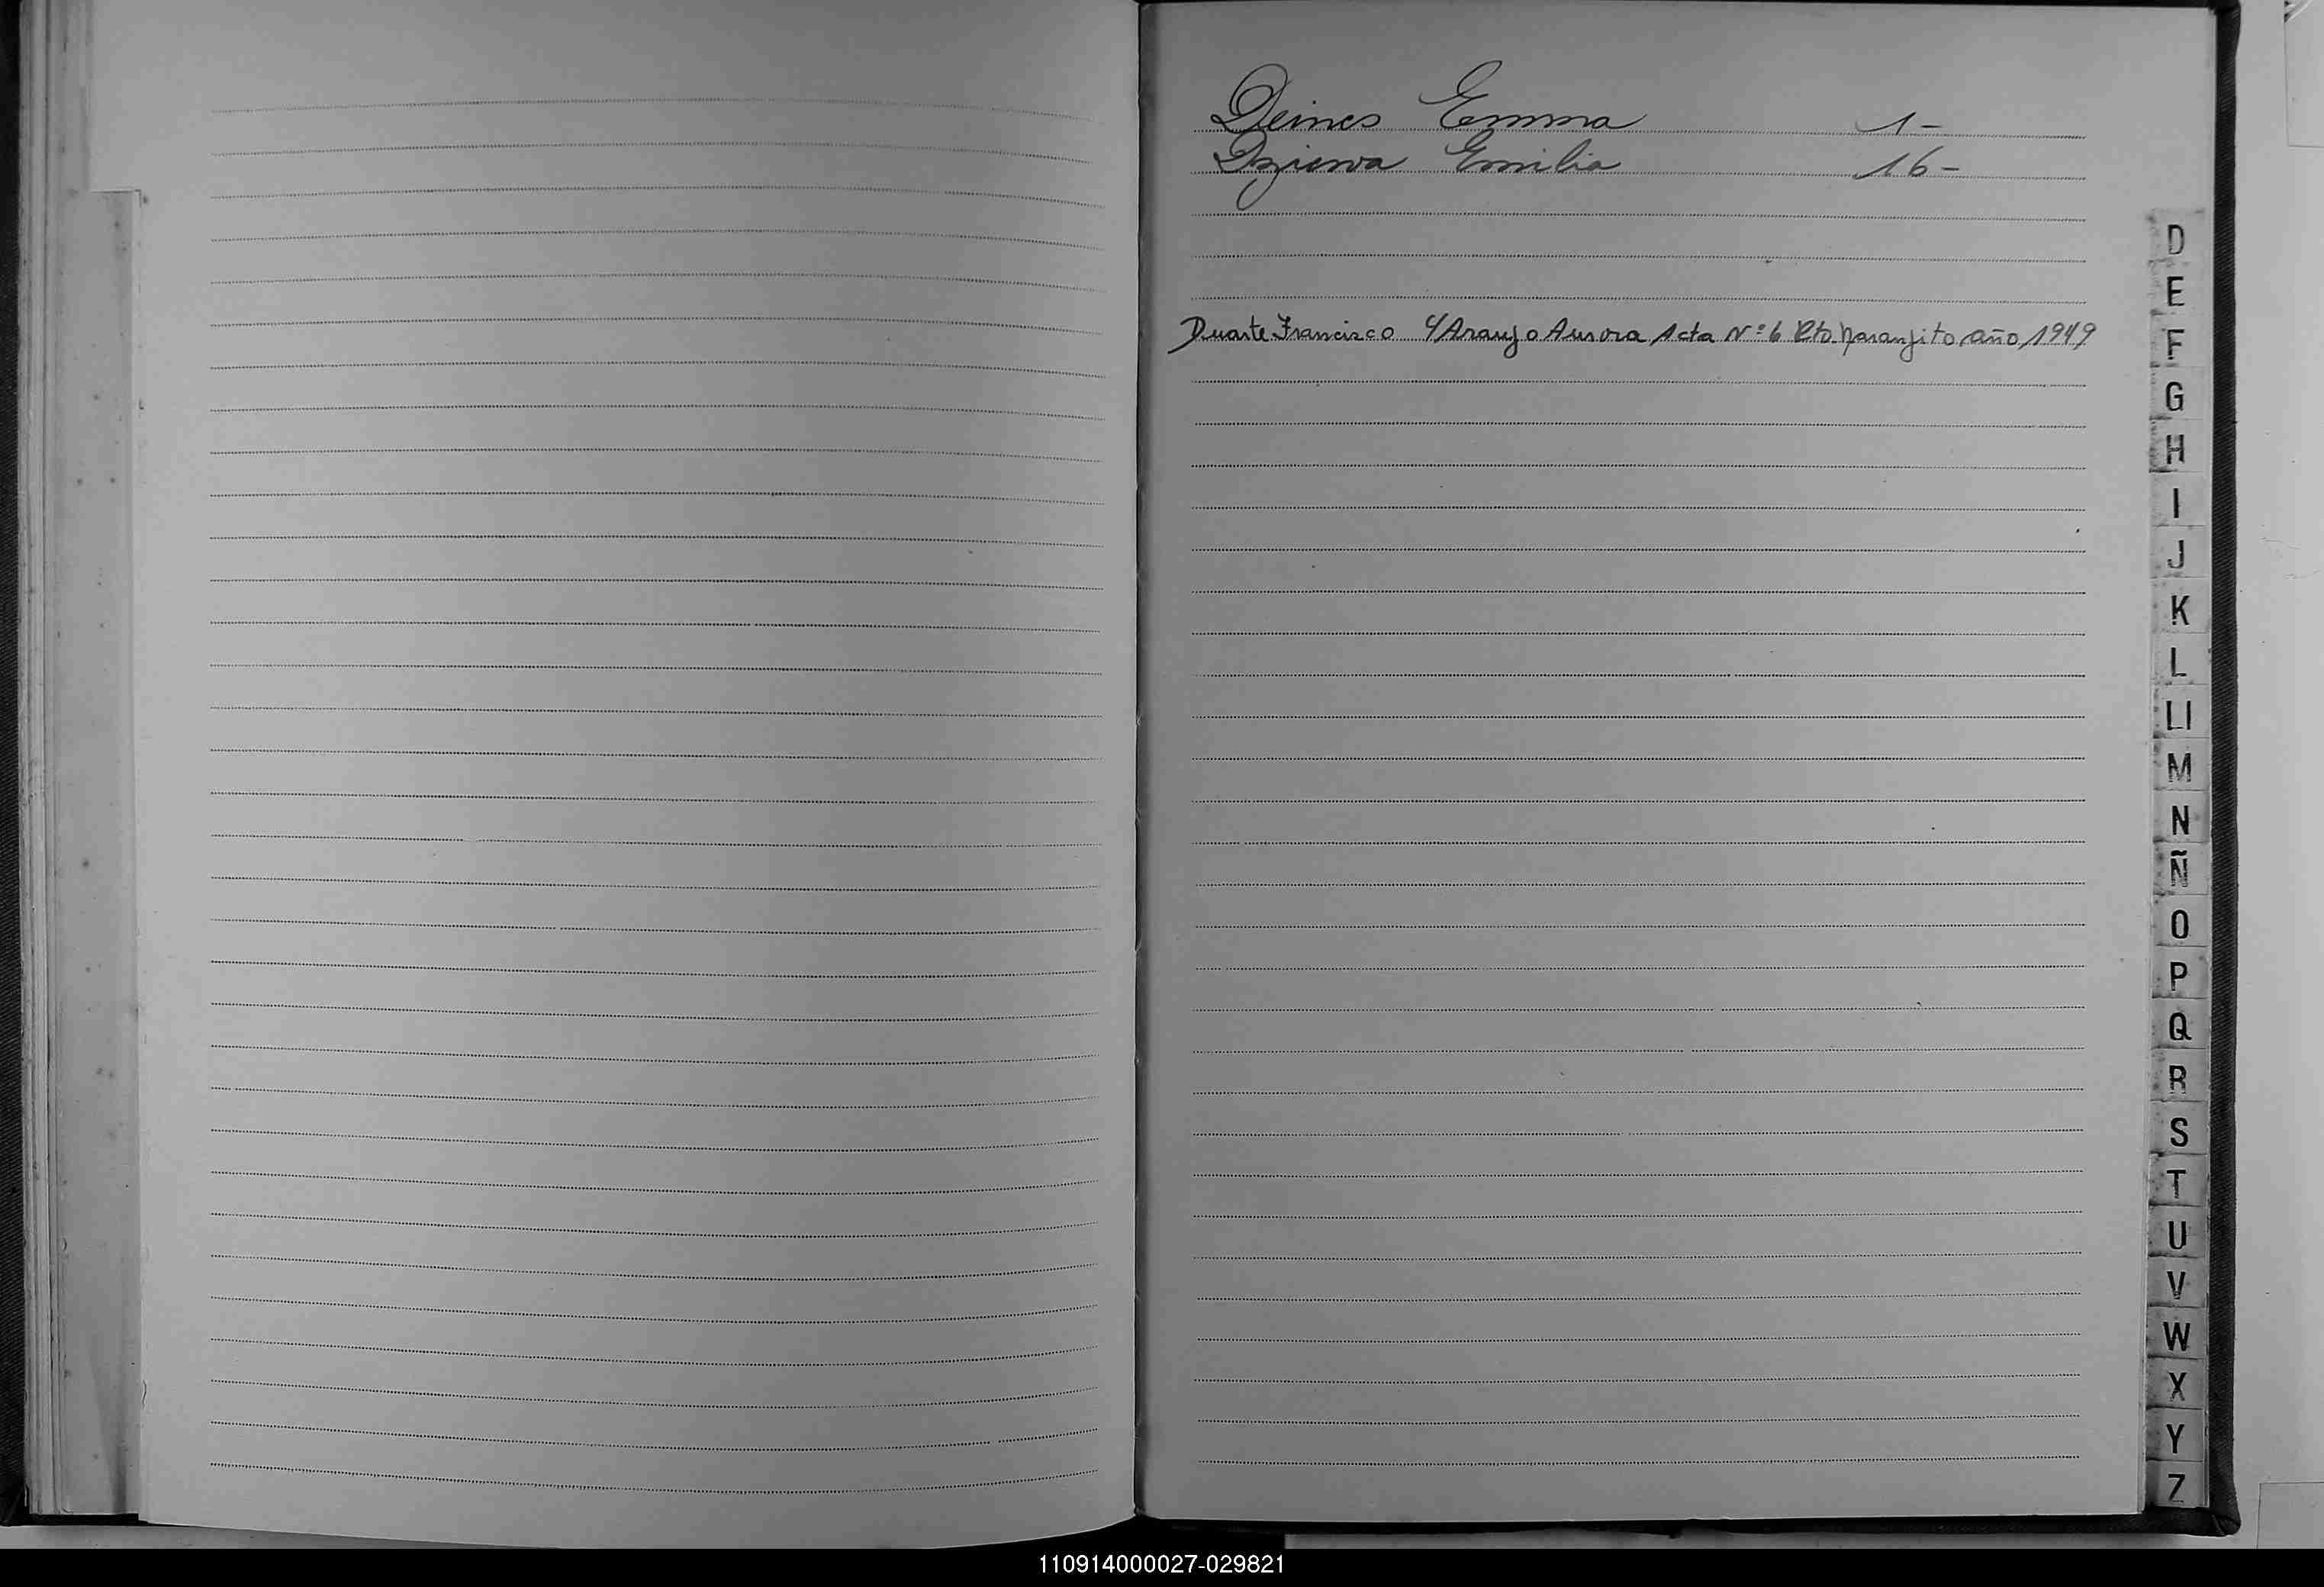 Deines Emma 1-
Dziewa Emilia 16-
Duarte Francisco c/Araujo Aurora Acta Nº 6 Cto. Naranjito año 1949
D
E
F
G
H
I
J
K
L
Ll
M
N
Ñ
O
P
Q
R
S
T
U
V
W
X
Y
Z
110914000027-029821